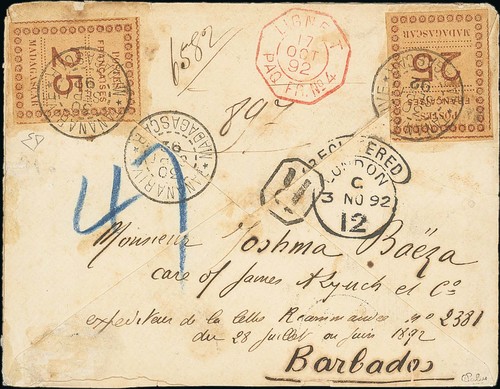 POSTES
FRANÇAISES
25
MADAGASCAR
6582
LIGNE T
17
OCT
92
PAQ. FR. Nº 4
25
POSTES
FRANÇAISES
MADAGASCAR
897
TANANARIVE
MADAGASCAR
REGISTERED
LONDON
C
3 NO 92
12
R
47
Monsieur Joshma Baëza
care of James Lynch et Cº
expediteur de la lettre Recommandée nº 2381
du 28 juillet ou juin 1892
Barbados